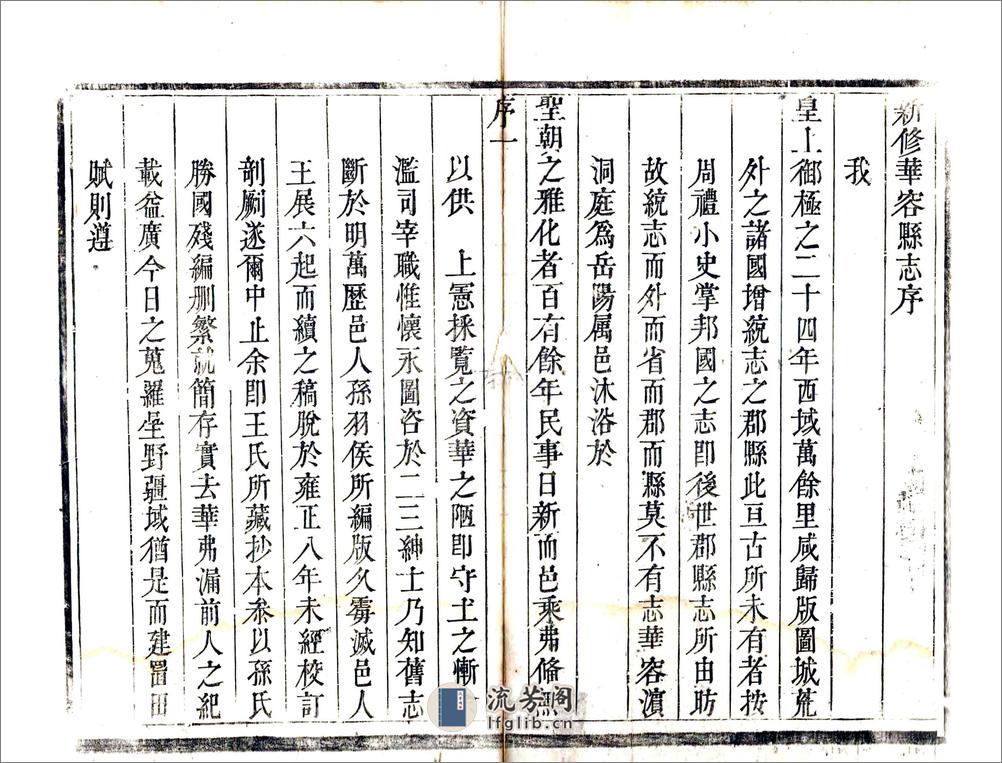 新修華容縣志序
我
皇上御極之二十四年西域萬餘里咸歸版圖城荒
外之諸國增統志之郡縣此亘古所未有者按
周禮小史掌邦國之志即後世郡縣志所由昉
故統志而外而省而郡而縣莫不有志華容濵
洞庭爲岳陽属邑沐浴於
聖朝之雅化者百有餘年民事日新而邑乘弗脩無
序一
以供　上憲採覽之資華之陋即守土之慚
濫司宰職惟懷永圖咨於二三紳士乃知舊志
斷於明萬歷邑人孫羽侯所編版久霉滅邑人
王展六起而續之稿脫於雍正八年未經校訂
剞劂遂爾中止余即王氏所藏抄本叅以孫氏
勝國殘編刪繁就簡存實去華弗漏前人之紀
載益廣今日之蒐羅星野疆域猶是而建置田
賦則遵
流芳阁
lfglib.cn